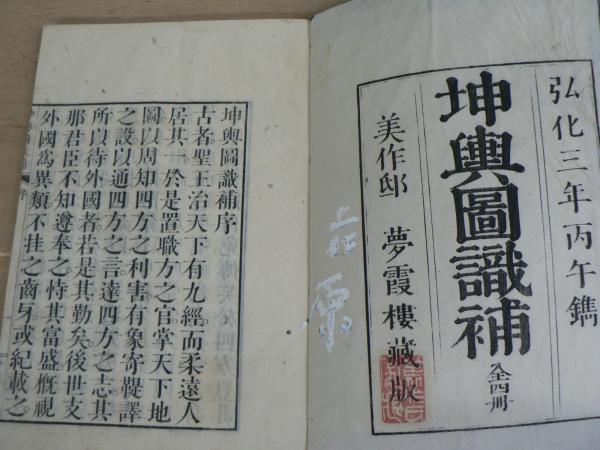 弘化三年丙午鐫
坤輿圖識補 全四冊
美作邸 夢霞樓藏版
坤輿圖識補序
古者聖王治天下有九經而柔遠人
居其一於是置職方之官掌天下地
圖以周知四方之利害有象寄鞮譯
之設以通四方之言達四方之志其
所以待外國者若是其勤矣後世支
那君臣不知遵奉之恃其富盛概視
外國為異類不挂之齒牙或紀載之